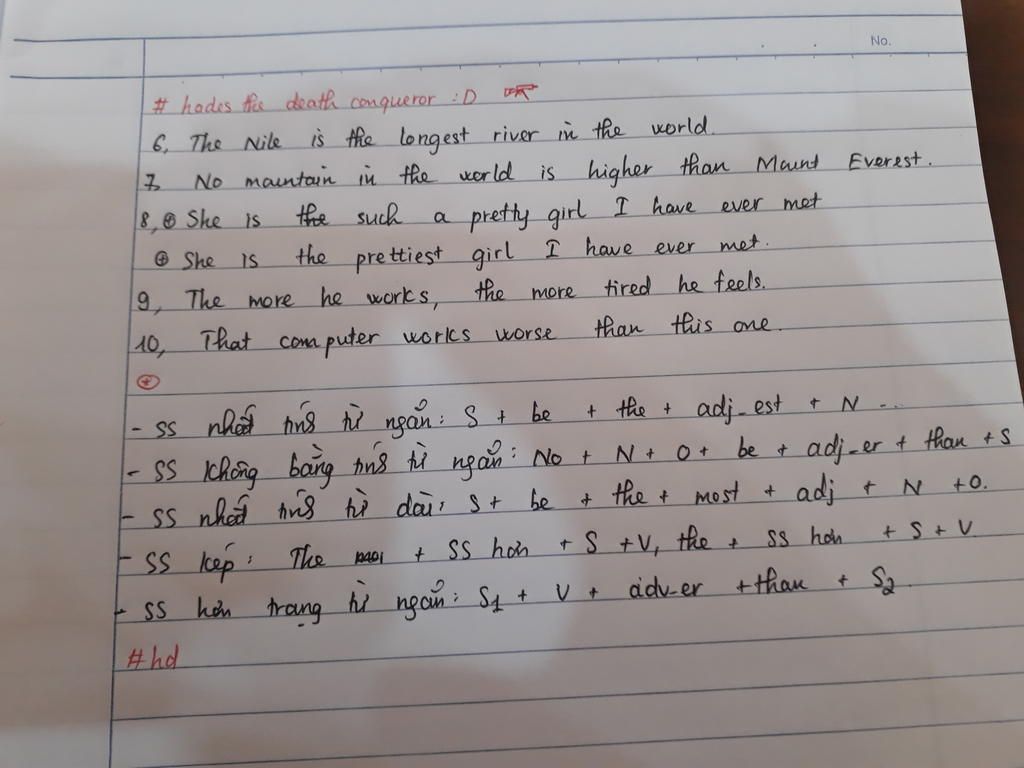 No.
# hades the death conqueror :D
6, The Nile is the longest river in the world.
7, No mountain in the world is higher than Mount Everest.
8, ⊕ She is the such a pretty girl I have ever met
⊕ She is the prettiest girl I have ever met.
9, The more he works, the more tired he feels.
10, That computer works worse than this one.
⊕
- SS nhất từ ngắn: S + be + the + adj_est + N ...
- SS không bằng từ ngắn: No + N + O + be + adj_er + than + S
- SS nhất từ dài: S + be + the + most + adj + N + O.
- SS kép: The + SS hơn + S + V, the + SS hơn + S + V.
- SS hơn trạng từ ngắn: S1 + V + adv_er + than + S2.
#hd